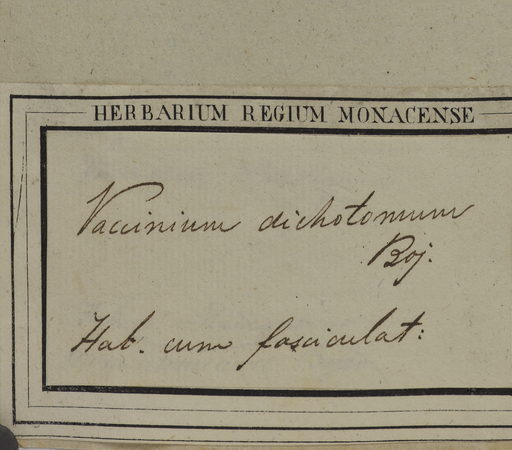 HERBARIUM REGIUM MONACENSE
Vaccinium dichotomum
Boj.
Hab. cum fasciculat: